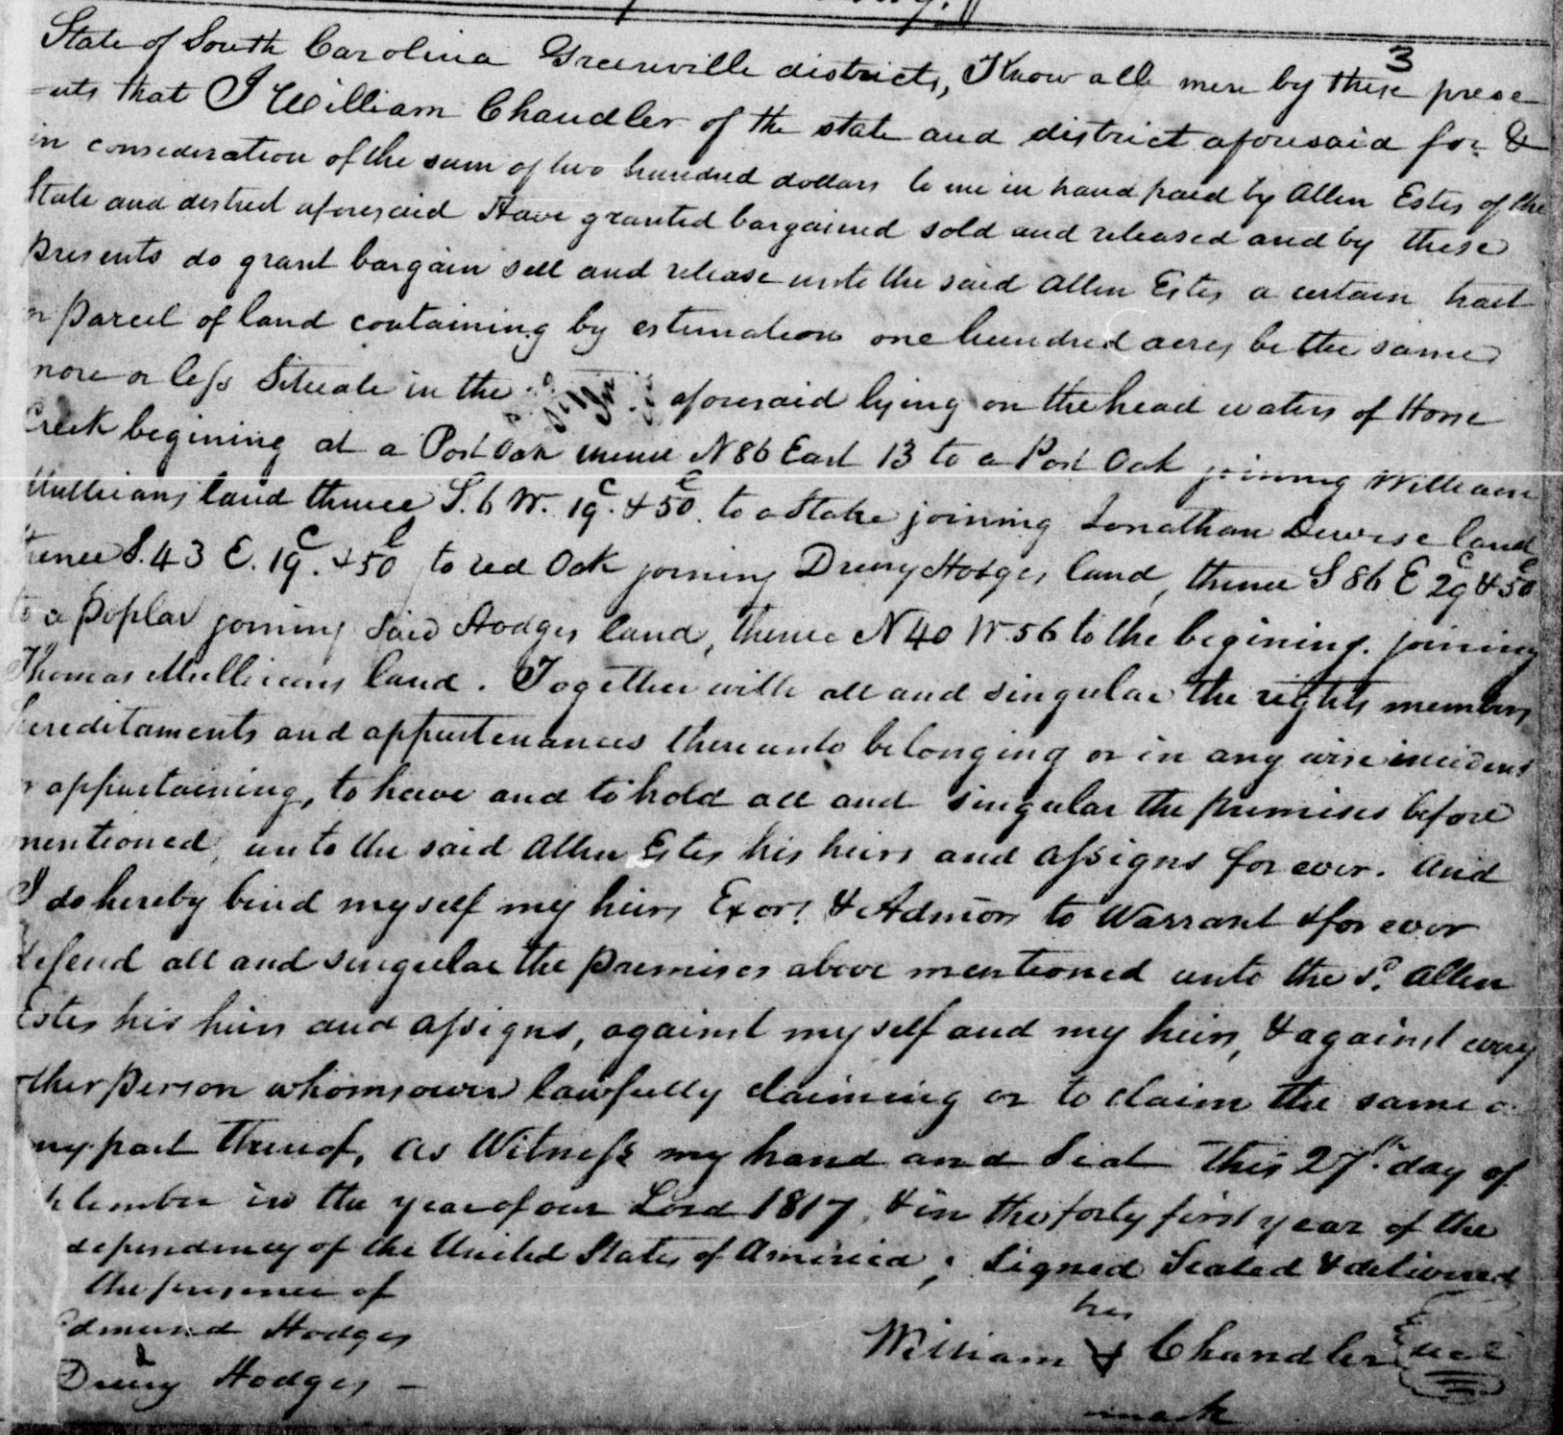 3
State of South Carolina Greenville district, Know all men by these prese-
-nts that I William Chandler of the state and district aforesaid for &
in consideration of the sum of two hundred dollars to me in hand paid by Allen Estes of the
State and district aforesaid Have granted bargained sold and released and by these
presents do grant bargain sell and release unto the said Allen Estes a certain tract
or parcel of land containing by estimation one hundred acres be the same
more or less Situate in the aforesaid lying on the head waters of Horse
Creek begining at a Post Oak thence N 86 East 13 to a Post Oak joining William
Mullicans land thence S. 6 W. 19C. & 50L. to a Stake joining Jonathan Dewese land
thence S. 43 E. 19C. & 50L to red Oak joining Drury Hodges land, thence S 86 E 29C & 50L
to a poplar joining said Hodges land, thence N 40 W. 56 to the begining. joining
Thomas Mullicans land. Together with all and singular the rights members
hereditaments and appurtenances thereunto belonging or in any wise incident
or appurtaining, to have and to hold all and singular the premises before
mentioned, unto the said Allen Estes his heirs and assigns for ever. And
I do hereby bind myself my heirs Exors. & Admors to Warrant & for ever
defend all and singular the premises above mentioned unto the sd. Allen
Estes his heirs and assigns, against my self and my heirs, & against every
other person whomsoever lawfully claiming or to claim the same or
any part thereof, As Witness my hand and Seal This 27th. day of
in the year of our Lord 1817, & in the forty first year of the
dependency of the United States of America; Signed Sealed & delivered
the presence of
Edmund Hodges
Drury Hodges -
his
William X Chandler Seal
mark